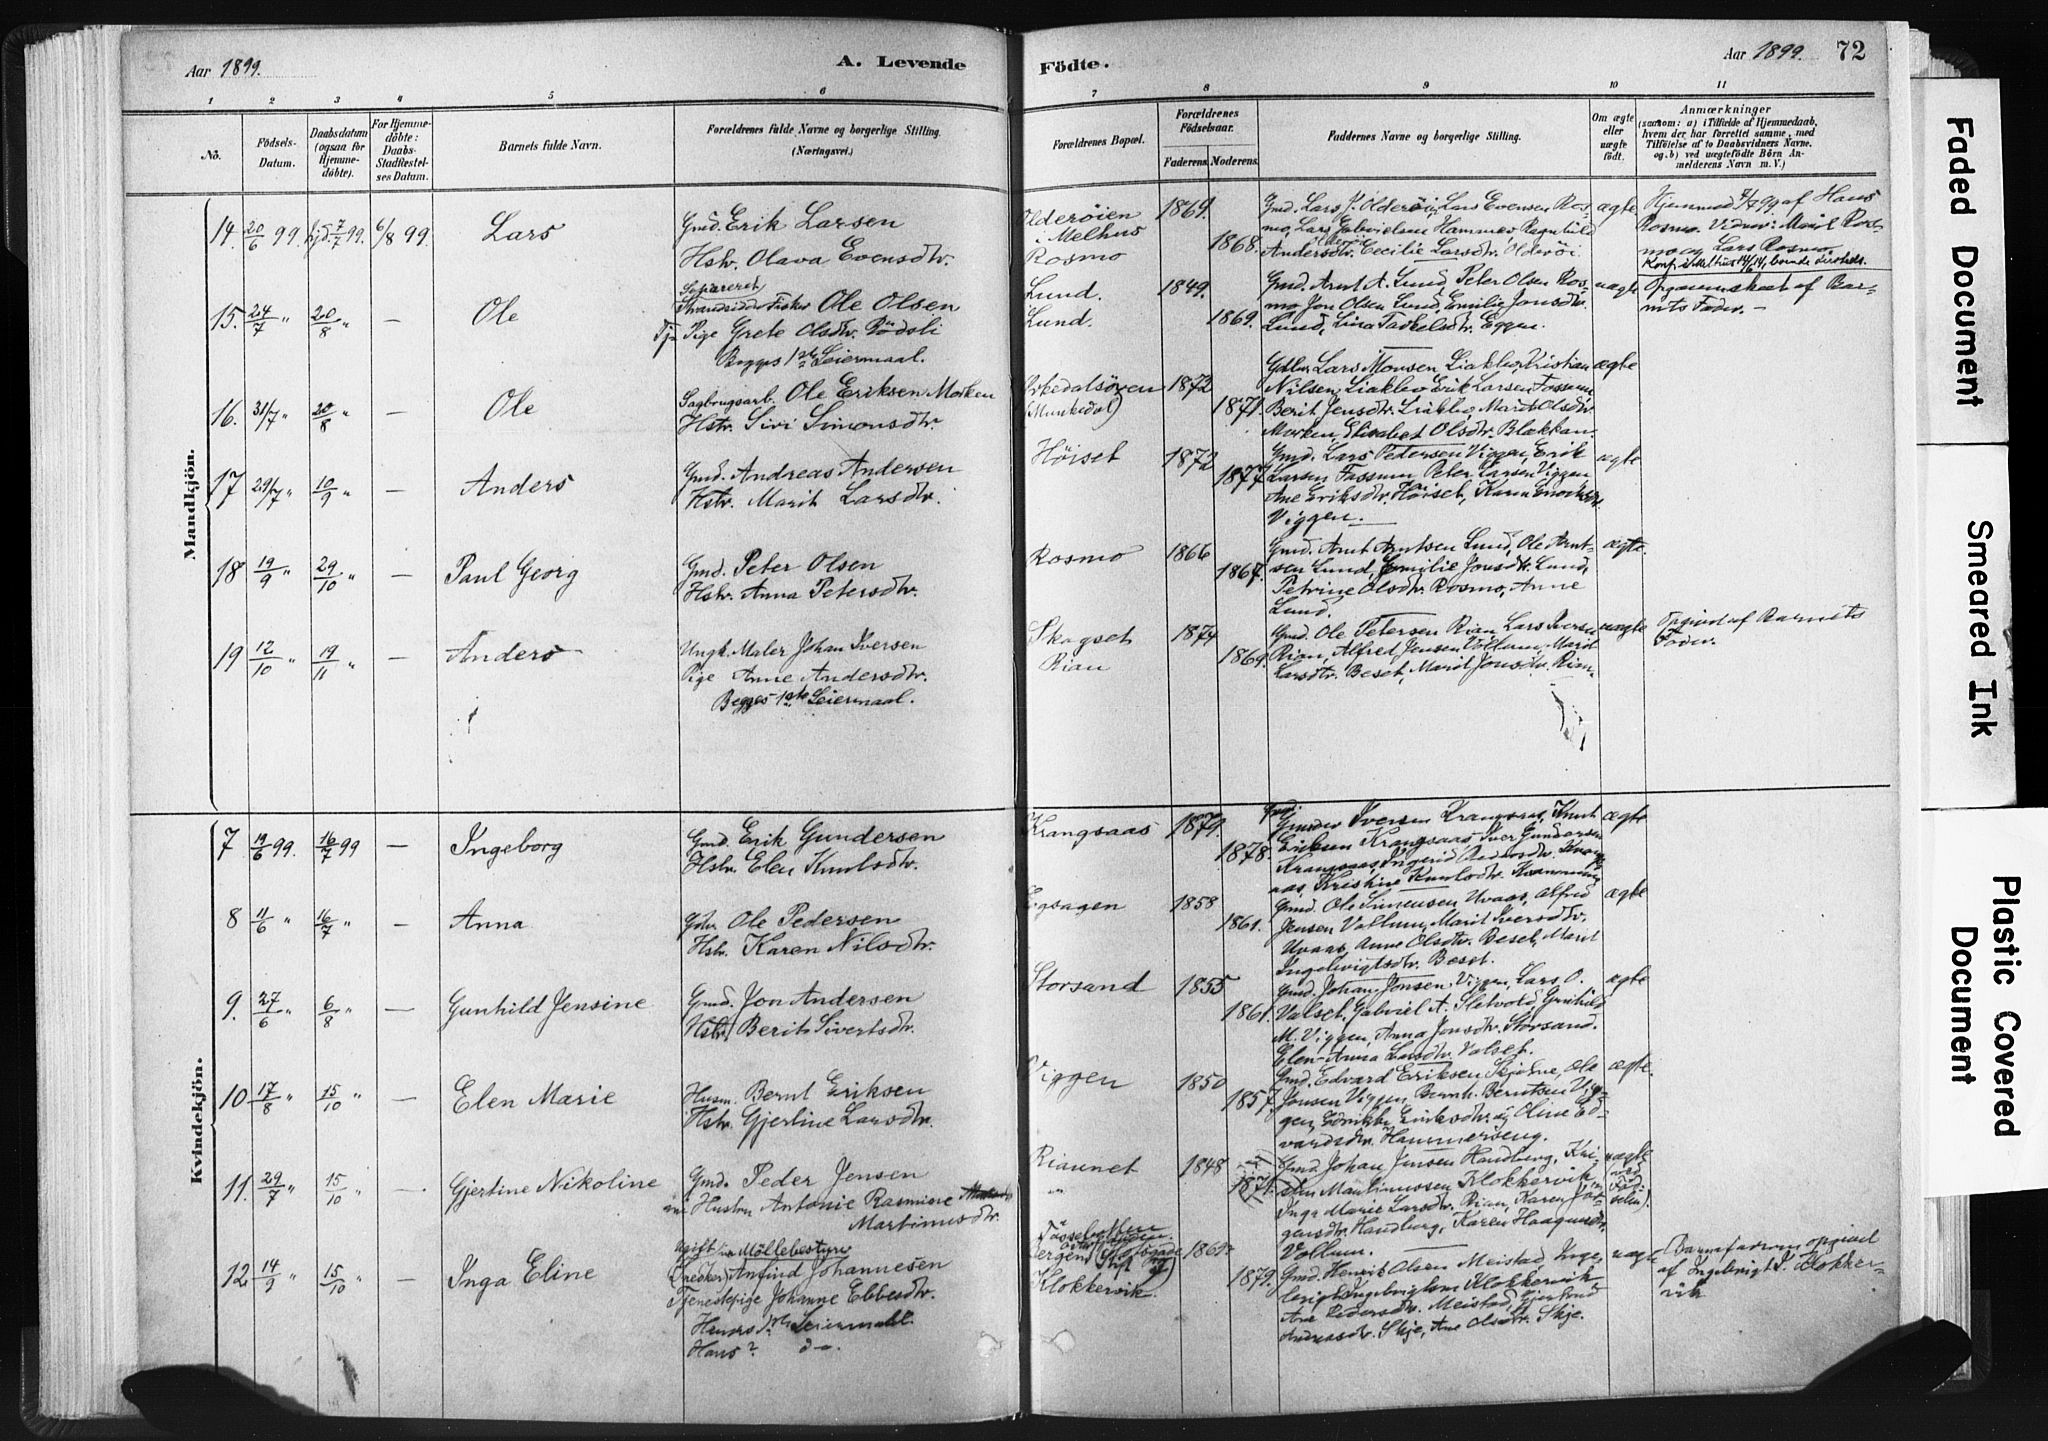 Aar 1899.
A. Levende
Födte.
Aar 1899. 72
1 2 3 4 5 6 7 8 9 10 11
No.
Födsels-Datum.
Daabsdatum (ogsaa for Hjemme-döbte).
For Hjemme-döbte: Daabs-Stadfæstel-ses Datum.
Barnets fulde Navn.
Forældrenes fulde Navne og borgerlige Stilling. (Næringsvei.)
Forældrenes Bopæl.
Forældrenes Födselsaar.
Faderens. Moderens.
Faddernes Navne og borgerlige Stilling.
Om ægte eller uægte födt.
Anmærkninger
(saasom: a) i Tilfælde af Hjemmedaab,
hvem der har forrettet samme, med
Tilföielse af to Daabsvidners Navne.
og b) ved uægtefödte Börn An-
melderens Navn m. V.)
Mandkjön.
14. 20/6 99 hjd. 7/7 99. 6/8 99. Lars
Gmd. Erik Larsen
Hstr. Olava Evensdtr.
Olderöien i Melhus
Rosmo
1869.
1868.
Gmd. Lars J. Olderöi, Lars Evensen Ros-
mo, Lars Gabrielsen Hammer, Ragnhild
Andersdtr. Cecilie Larsdtr. Olderöi.
ægte
Hjemmed 7/7 99 af Hans
Rosmo. Vidner: Marit Ros-
mo og Lars Rosmo.
15. 24/7 " 20/8 " — Ole
Separeret
Strandsidder Fisker Ole Olsen
Tj. Pige Grete Olsdtr. Rödsli
Begges 1ste Leiermaal.
Lund.
Lund.
1849.
1869.
Gmd. Arnt A. Lund, Peter Olsen Ros-
mo, Jon Olsen Lund, Emilie Jonsdtr.
Lund, Lina Olsdtr. Eggen.
uægte
af Bar-
nets Fader. —
16. 31/7 " 20/8 " — Ole
Sagbrugsarb. Ole Eriksen Morken
Hstr. Sivi Simonsdtr.
Orkedalsören
(Munkedal)
1872
1871.
Lars Monsen Liakbo, Kristian
Nilsen, Liakbo, Erik Larsen Fossum,
Berit Jensdtr. Liakbo, Marit Olsdtr.
Morken, Elisabet Olsdtr. Blækkan.
ægte
17 29/7 " 10/9 " — Anders
Gmd. Andreas Andersen
Hstr. Marit Larsdtr.
Höiset
1872
1877.
Gmd. Lars Pedersen Viggen, Erik
Larsen Fossum, Peter Larsen Viggen,
Ane Eriksdtr. Höiset, Karen
Viggen.
ægte
18 19/9 " 29/10 " — Paul Georg
Gmd. Peter Olsen
Hstr. Anna Petersdtr.
Rosmo
1866
1867.
Gmd. Arnt Arntsen Lund, Ole Arnt-
sen Lund, Emilie Jonsdtr. Lund,
Petrine Olsdtr. Rosmo, Anne
Lund.
ægte
19 12/10 " 19/11 " — Anders
Ungk. Maler Johan Iversen
Pige Anne Andersdtr.
Begges 1ste Leiermaal.
Skagset
Rian
1874
1869.
Gmd. Ole Petersen Rian, Lars Iversen
Rian, Alfred Jensen Vollum, Marit
Larsdtr. Beset, Marit Jonsdtr. Rian.
uægte
Opgivet af Barnets
Fader.
Kvindekjön.
7 19/6 99. 16/7 99 — Ingeborg
Gmd. Erik Gundersen
Hstr. Elen Knutsdtr.
Krangsaas
1879.
1878.
Gmd.
Gunder Iversen Krangsaas, Knut
Eriksen Krangsaas, Iver Gundersen
Krangsaas, Ingerid Andersdtr. Krangs-
aas, Kristine Knutsdtr.
ægte
8 11/6 " 16/7 " — Anna
Ole Pedersen
Hstr. Karen Nilsdtr.
Egsagen
1858
1861.
Gmd. Ole Simensen Uvaas, Alfred
Jensen Vollum, Marit Iversdtr.
Uvaas, Anne Olsdtr. Beset, Marit
Ingebrigtsdtr. Beset.
ægte
9. 27/6 " 6/8 " — Gunhild Jensine
Gmd. Jon Andersen
Hstr. Berit Sivertsdtr.
Storsand
1855
1861.
Gmd. Johan Jonsen Viggen, Lars O.
Valset, Gabriel A. Sletvold, Gunhild
M. Viggen, Anna Jonsdtr. Storsand.
Elen-Anna Larsdtr. Valset.
ægte
10 17/8 " 15/10 " — Elen Marie
Husm. Bernt Eriksen
Hstr. Gjertine Larsdtr.
Viggen
1850
1857.
Gmd. Edvard Eriksen Skjörne, Ole
Jonsen Viggen, Bernh. Berntsen Vig-
gen, Eriksdtr. og Oline Ed-
vardsdtr. Hammerseng.
ægte.
11. 29/7 " 15/10 " — Gjertine Nikoline
Gmd. Peder Jensen
Hustru Antonie Rasmine
Martinusdtr.
Riaunet
"
1848
1871.
Gmd. Johan Jensen Handberg, Kri-
sten Martinussen Klokkervik
Inga Marie Larsdtr. Rian, Karen Jör-
gensdtr. Handberg, Karen Haagensdtr.
Vollum.
12. 14/9 " 15/10 " Inga Eline
Ugift Möllebestyrer
(Snedker) Anfind Johannesen
Tjenestepige Johanne Ebbesdtr.
Hendes 1ste Leiermaal.
Hans ? do.
Bergen
Klokkervik.
1869
1879.
Gmd. Henrik Olsen Meistad, Inge-
brigt Ingebrigtsen Klokkervik
Ane Pedersdtr. Meistad, Gjertrud
Andreasdtr. Skje, Ane Olsdtr. Skje.
uægte
Barnefaderen opgivet
af Ingebrigt I. Klokker-
vik
Faded Document
Smeared Ink
Plastic Covered Document